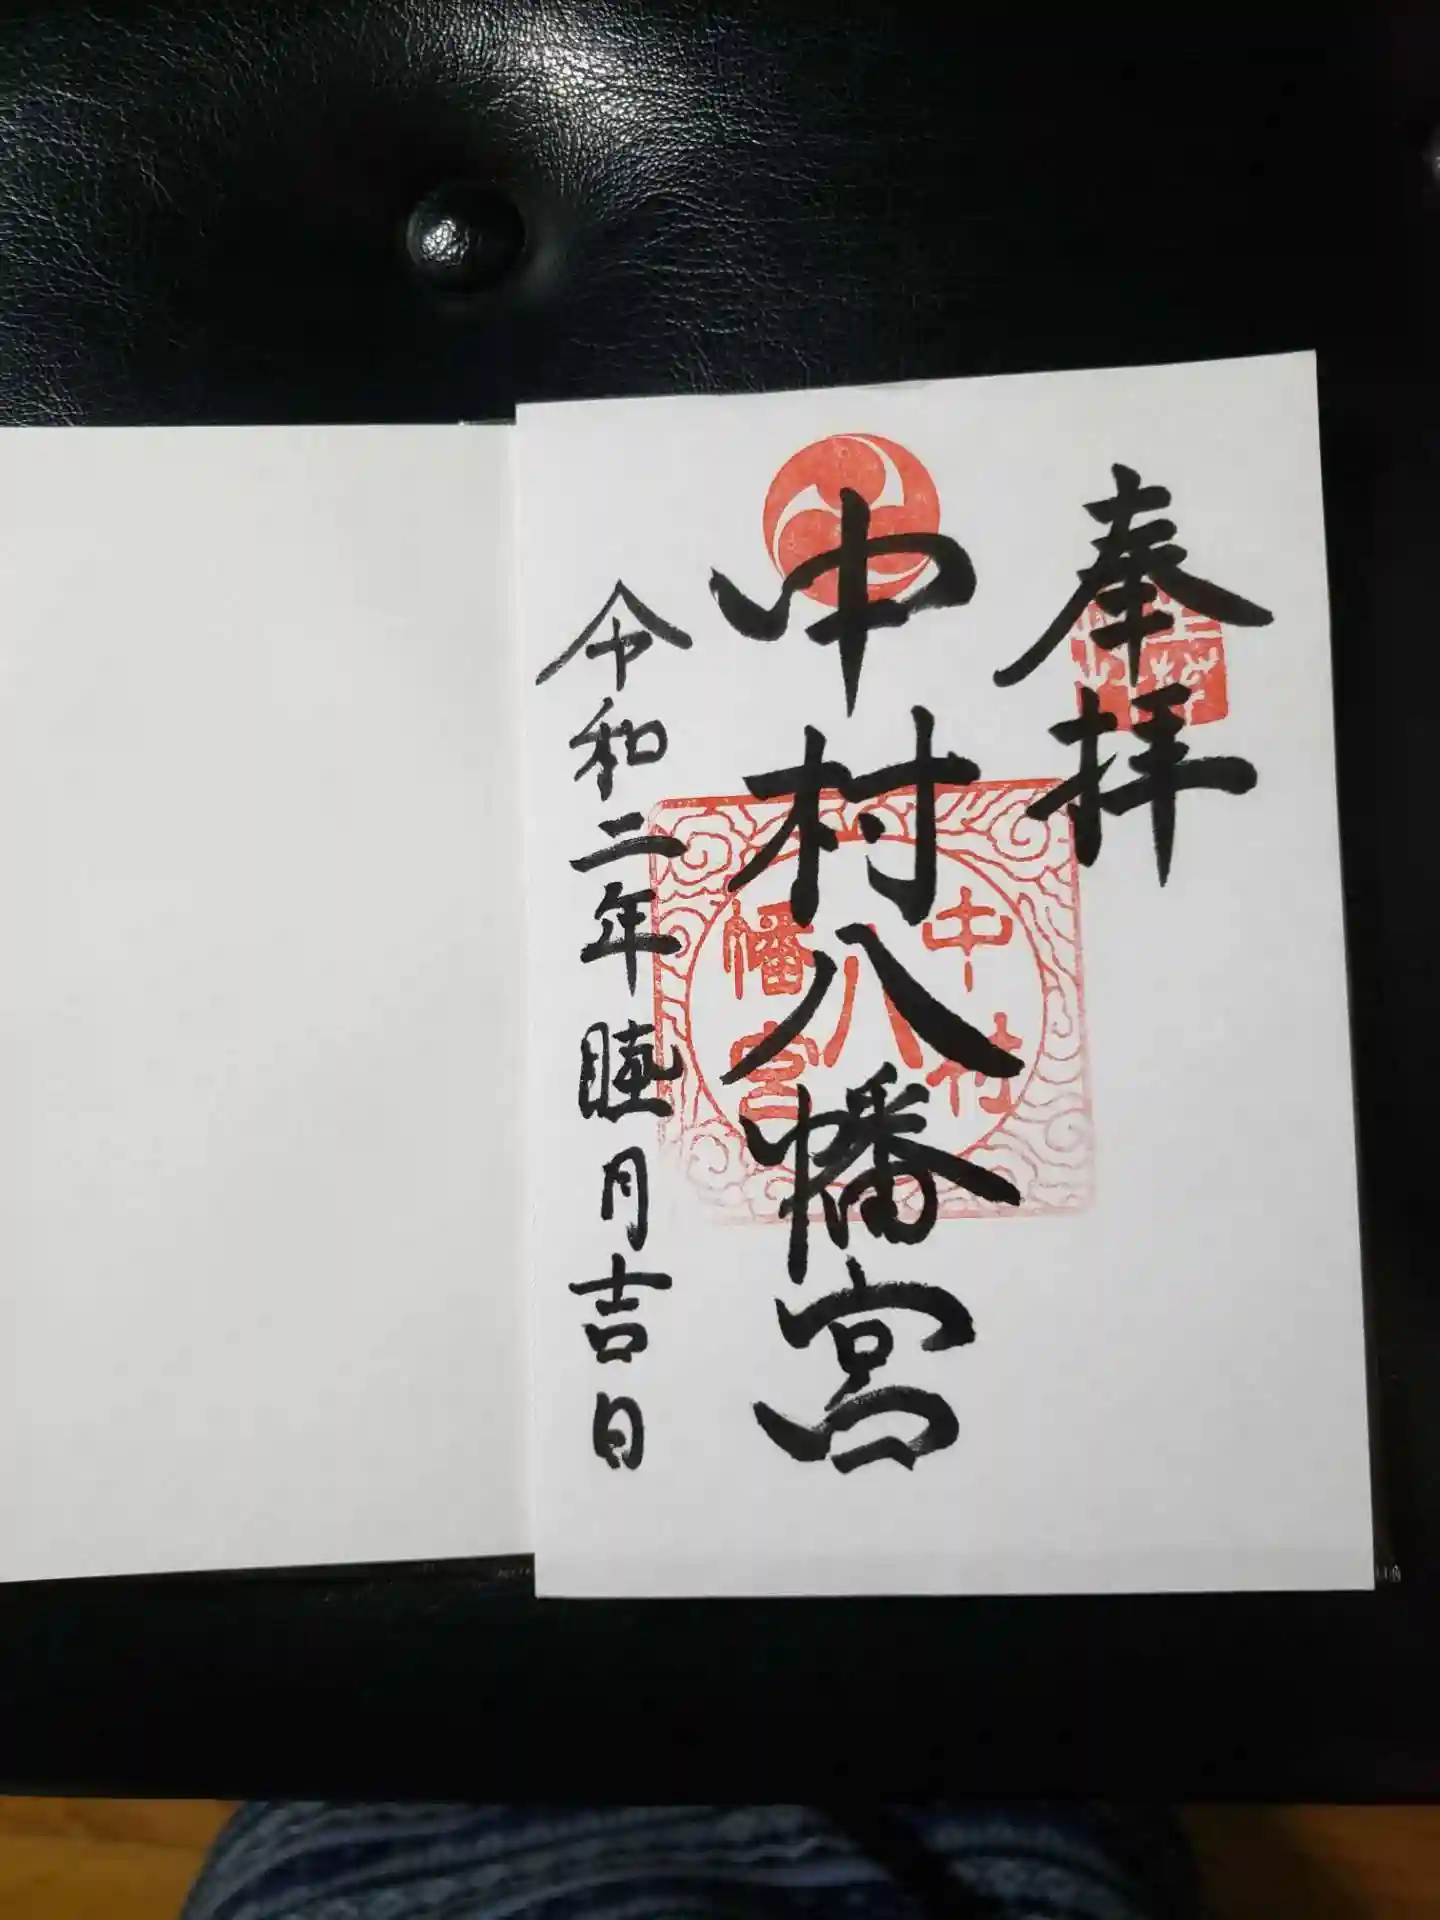 奉拝
中村八幡宮
令和二年睦月吉日
中村
八
幡宮